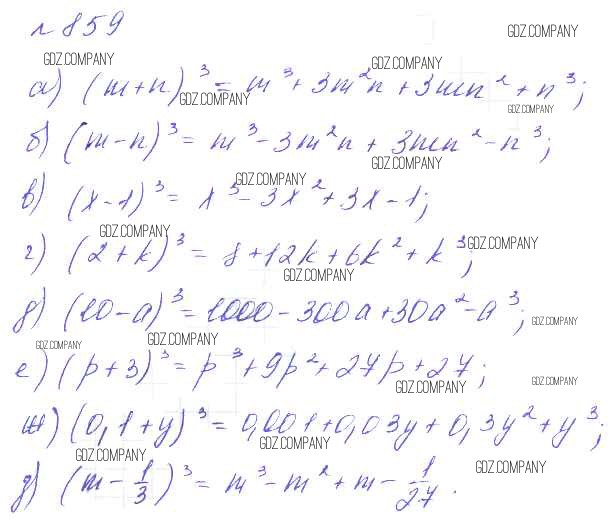 № 859
GDZ.COMPANY
GDZ.COMPANY
GDZ.COMPANY
а) (m+n)³ = m³ + 3m²n + 3mn² + n³;
GDZ.COMPANY
GDZ.COMPANY
б) (m-n)³ = m³ - 3m²n + 3mn² - n³;
GDZ.COMPANY
GDZ.COMPANY
в) (x-1)³ = x³ - 3x² + 3x - 1;
GDZ.COMPANY
г) (2+k)³ = 8 + 12k + 6k² + k³;
GDZ.COMPANY
GDZ.COMPANY
д) (10-a)³ = 1000 - 300a + 30a² - a³;
GDZ.COMPANY
GDZ.COMPANY
GDZ.COMPANY
е) (p+3)³ = p³ + 9p² + 27p + 27;
GDZ.COMPANY
GDZ.COMPANY
ж) (0,1+y)³ = 0,001 + 0,03y + 0,3y² + y³;
GDZ.COMPANY
GDZ.COMPANY
GDZ.COMPANY
з) (m - 1/3)³ = m³ - m² + m - 1/27.